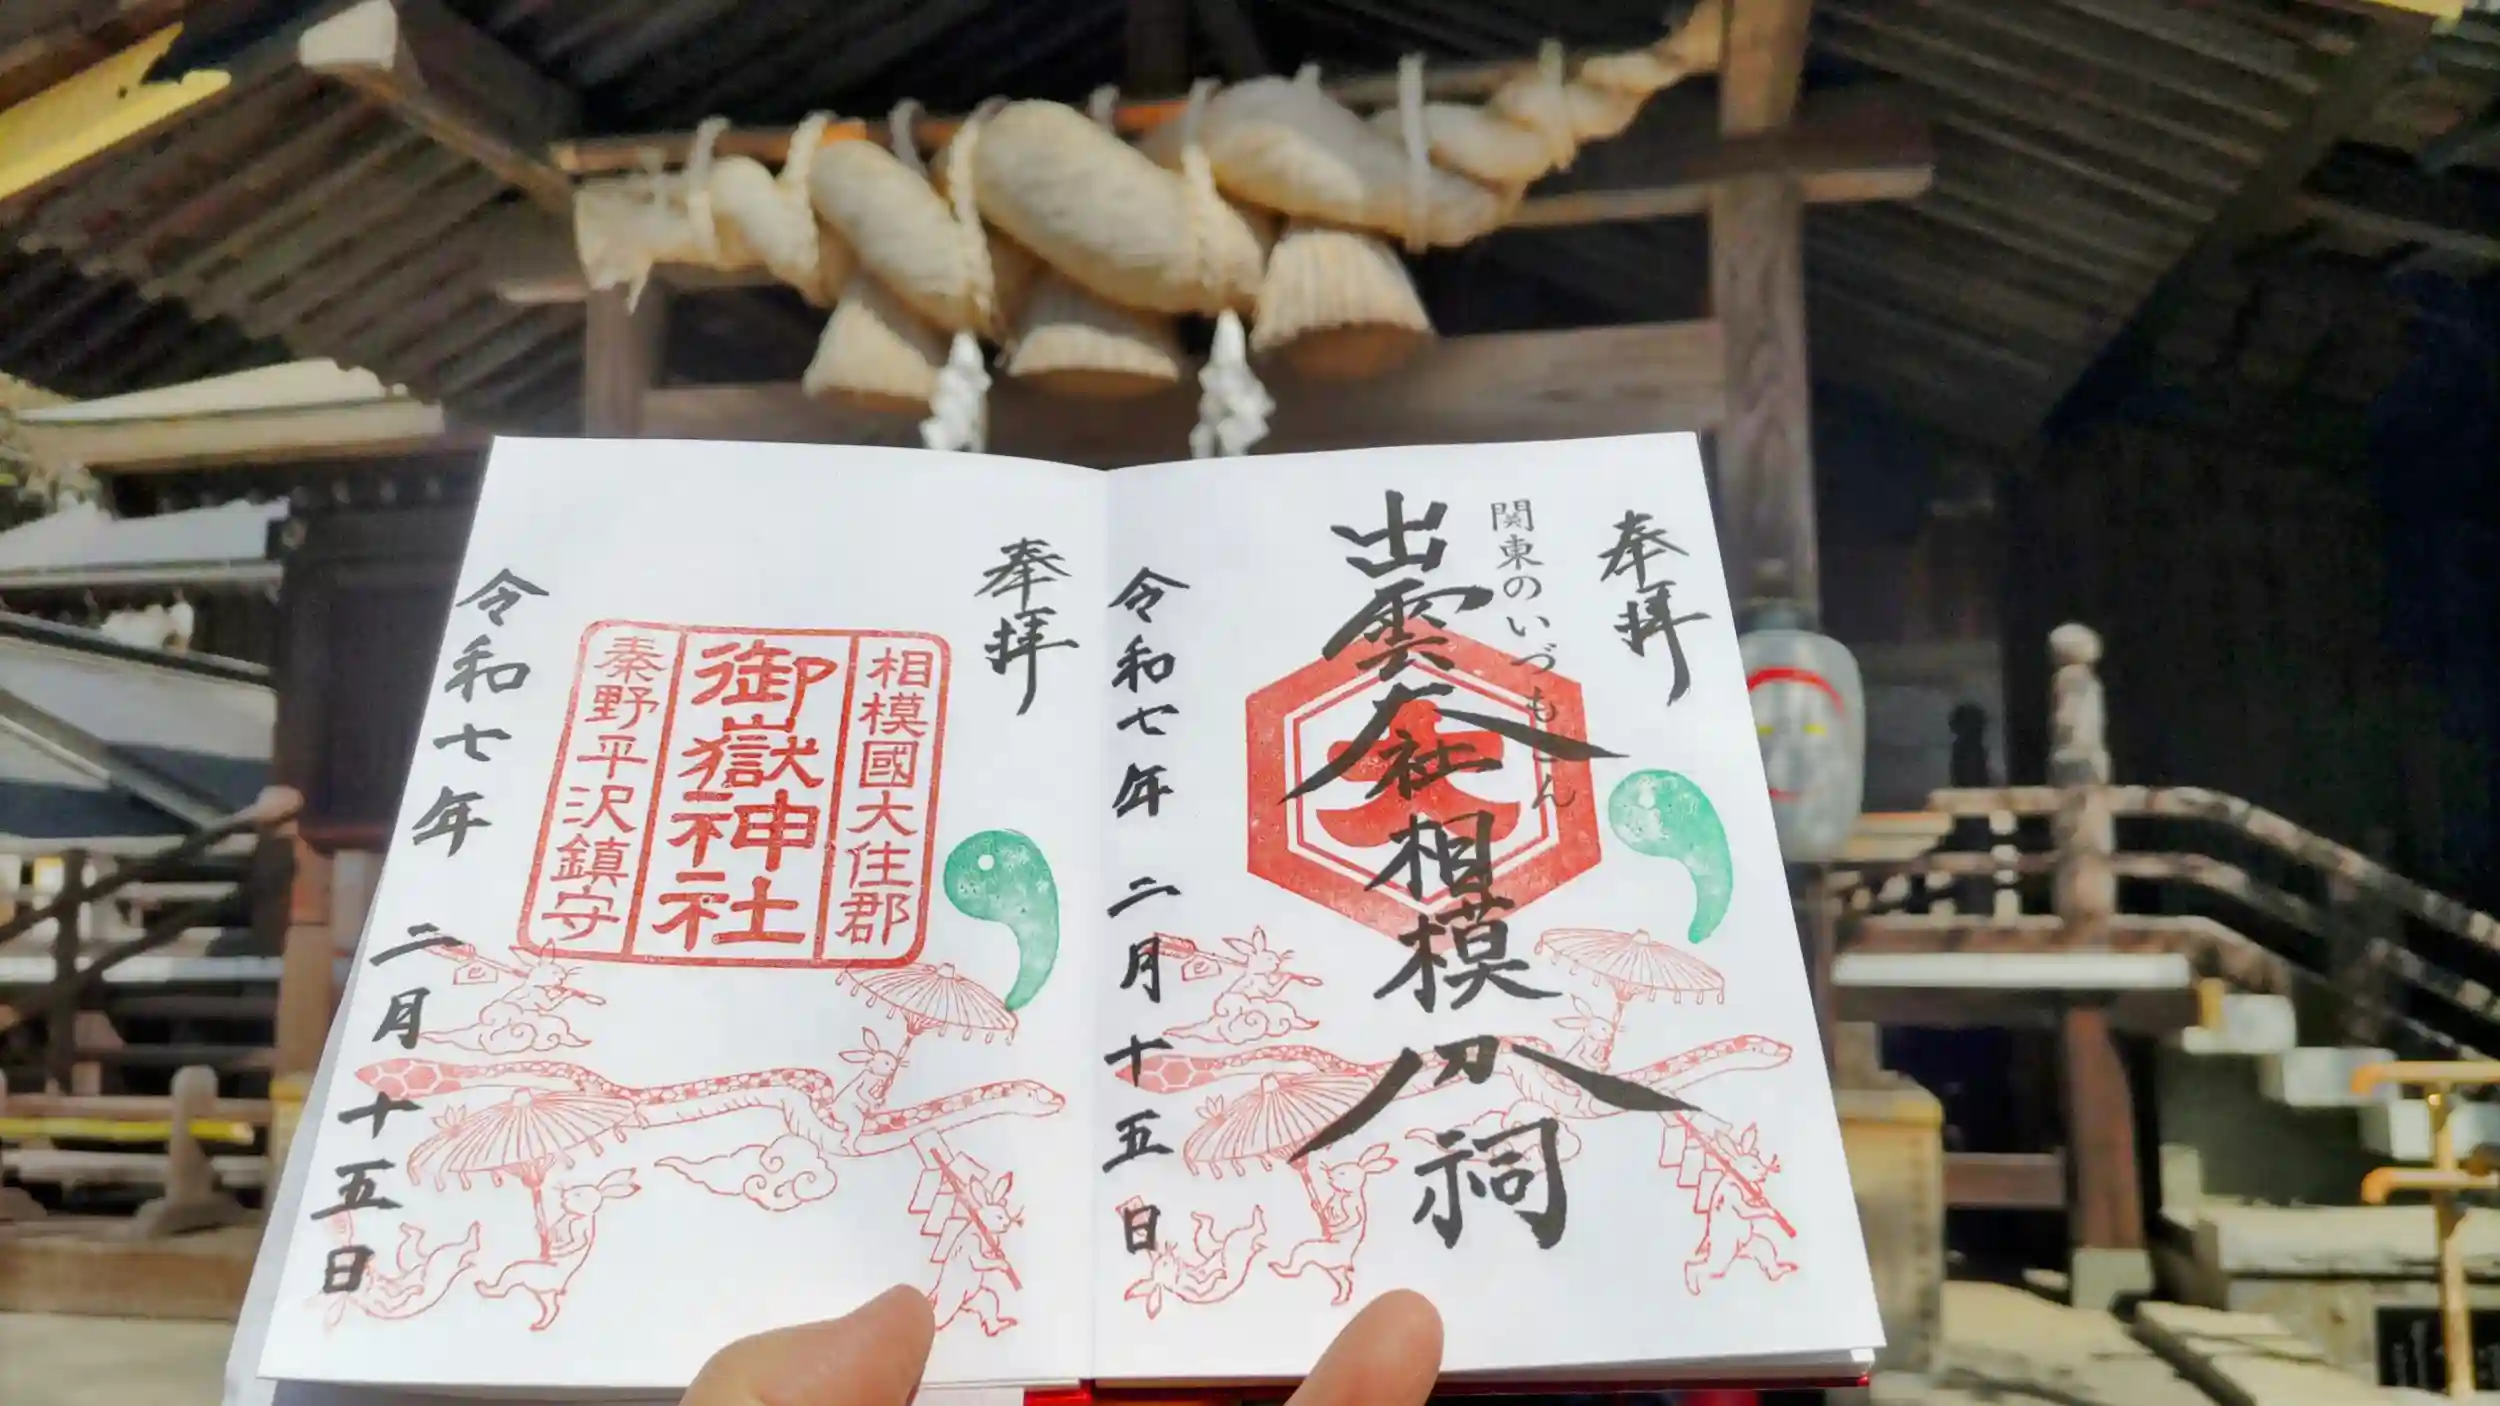 奉拝
関東のいづもさん
出雲大社相模分祠
令和七年 二月十五日
奉拝
相模國大住郡
御嶽神社
秦野平沢鎮守
令和七年 二月十五日